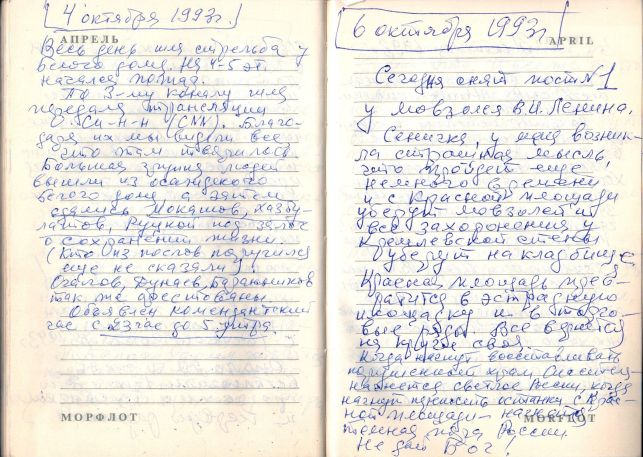 4 октября 1993г.
АПРЕЛЬ
Весь день шла стрельба у
Белого дома. На 4-5 эт.
начался пожар.
По 3-му каналу шла
передача трансляции
Си-н-н (CNN). Благо-
даря им мы видели все
что там творилось.
Большая группа людей
вышли из осажденого
белого дома, а затем
сдались Мокашов, Хазбу-
латов, Руцкой под залог
о сохранении жизни.
(Кто из послов поручился
еще не сказали)
Очалов, Дунаев, Баранников
так же арестованы.
Объявлен комендантский
час с 23 час до 5 утра.
МОРФЛОТ
6 октября 1993г
APRIL
Сегодня снят пост №1
у мовзолея В.И. Ленина.
у меня возник-
ла страшная мысль,
что пройдет еще
немного времени
и с Красной площади
уберут мовзолей и
все захоронения у
Кремлевской стены
Уберут на кладбище
Красная площадь прев-
ратится в эстрадную
площадку и в торго-
вые ряды. Все вернется
на круги своя.
Когда начнут восстанавливать
храм
светлое России, когда
начнут переносить останки с Крас-
ной площади
России
Не дай Бог!
MORFLOT